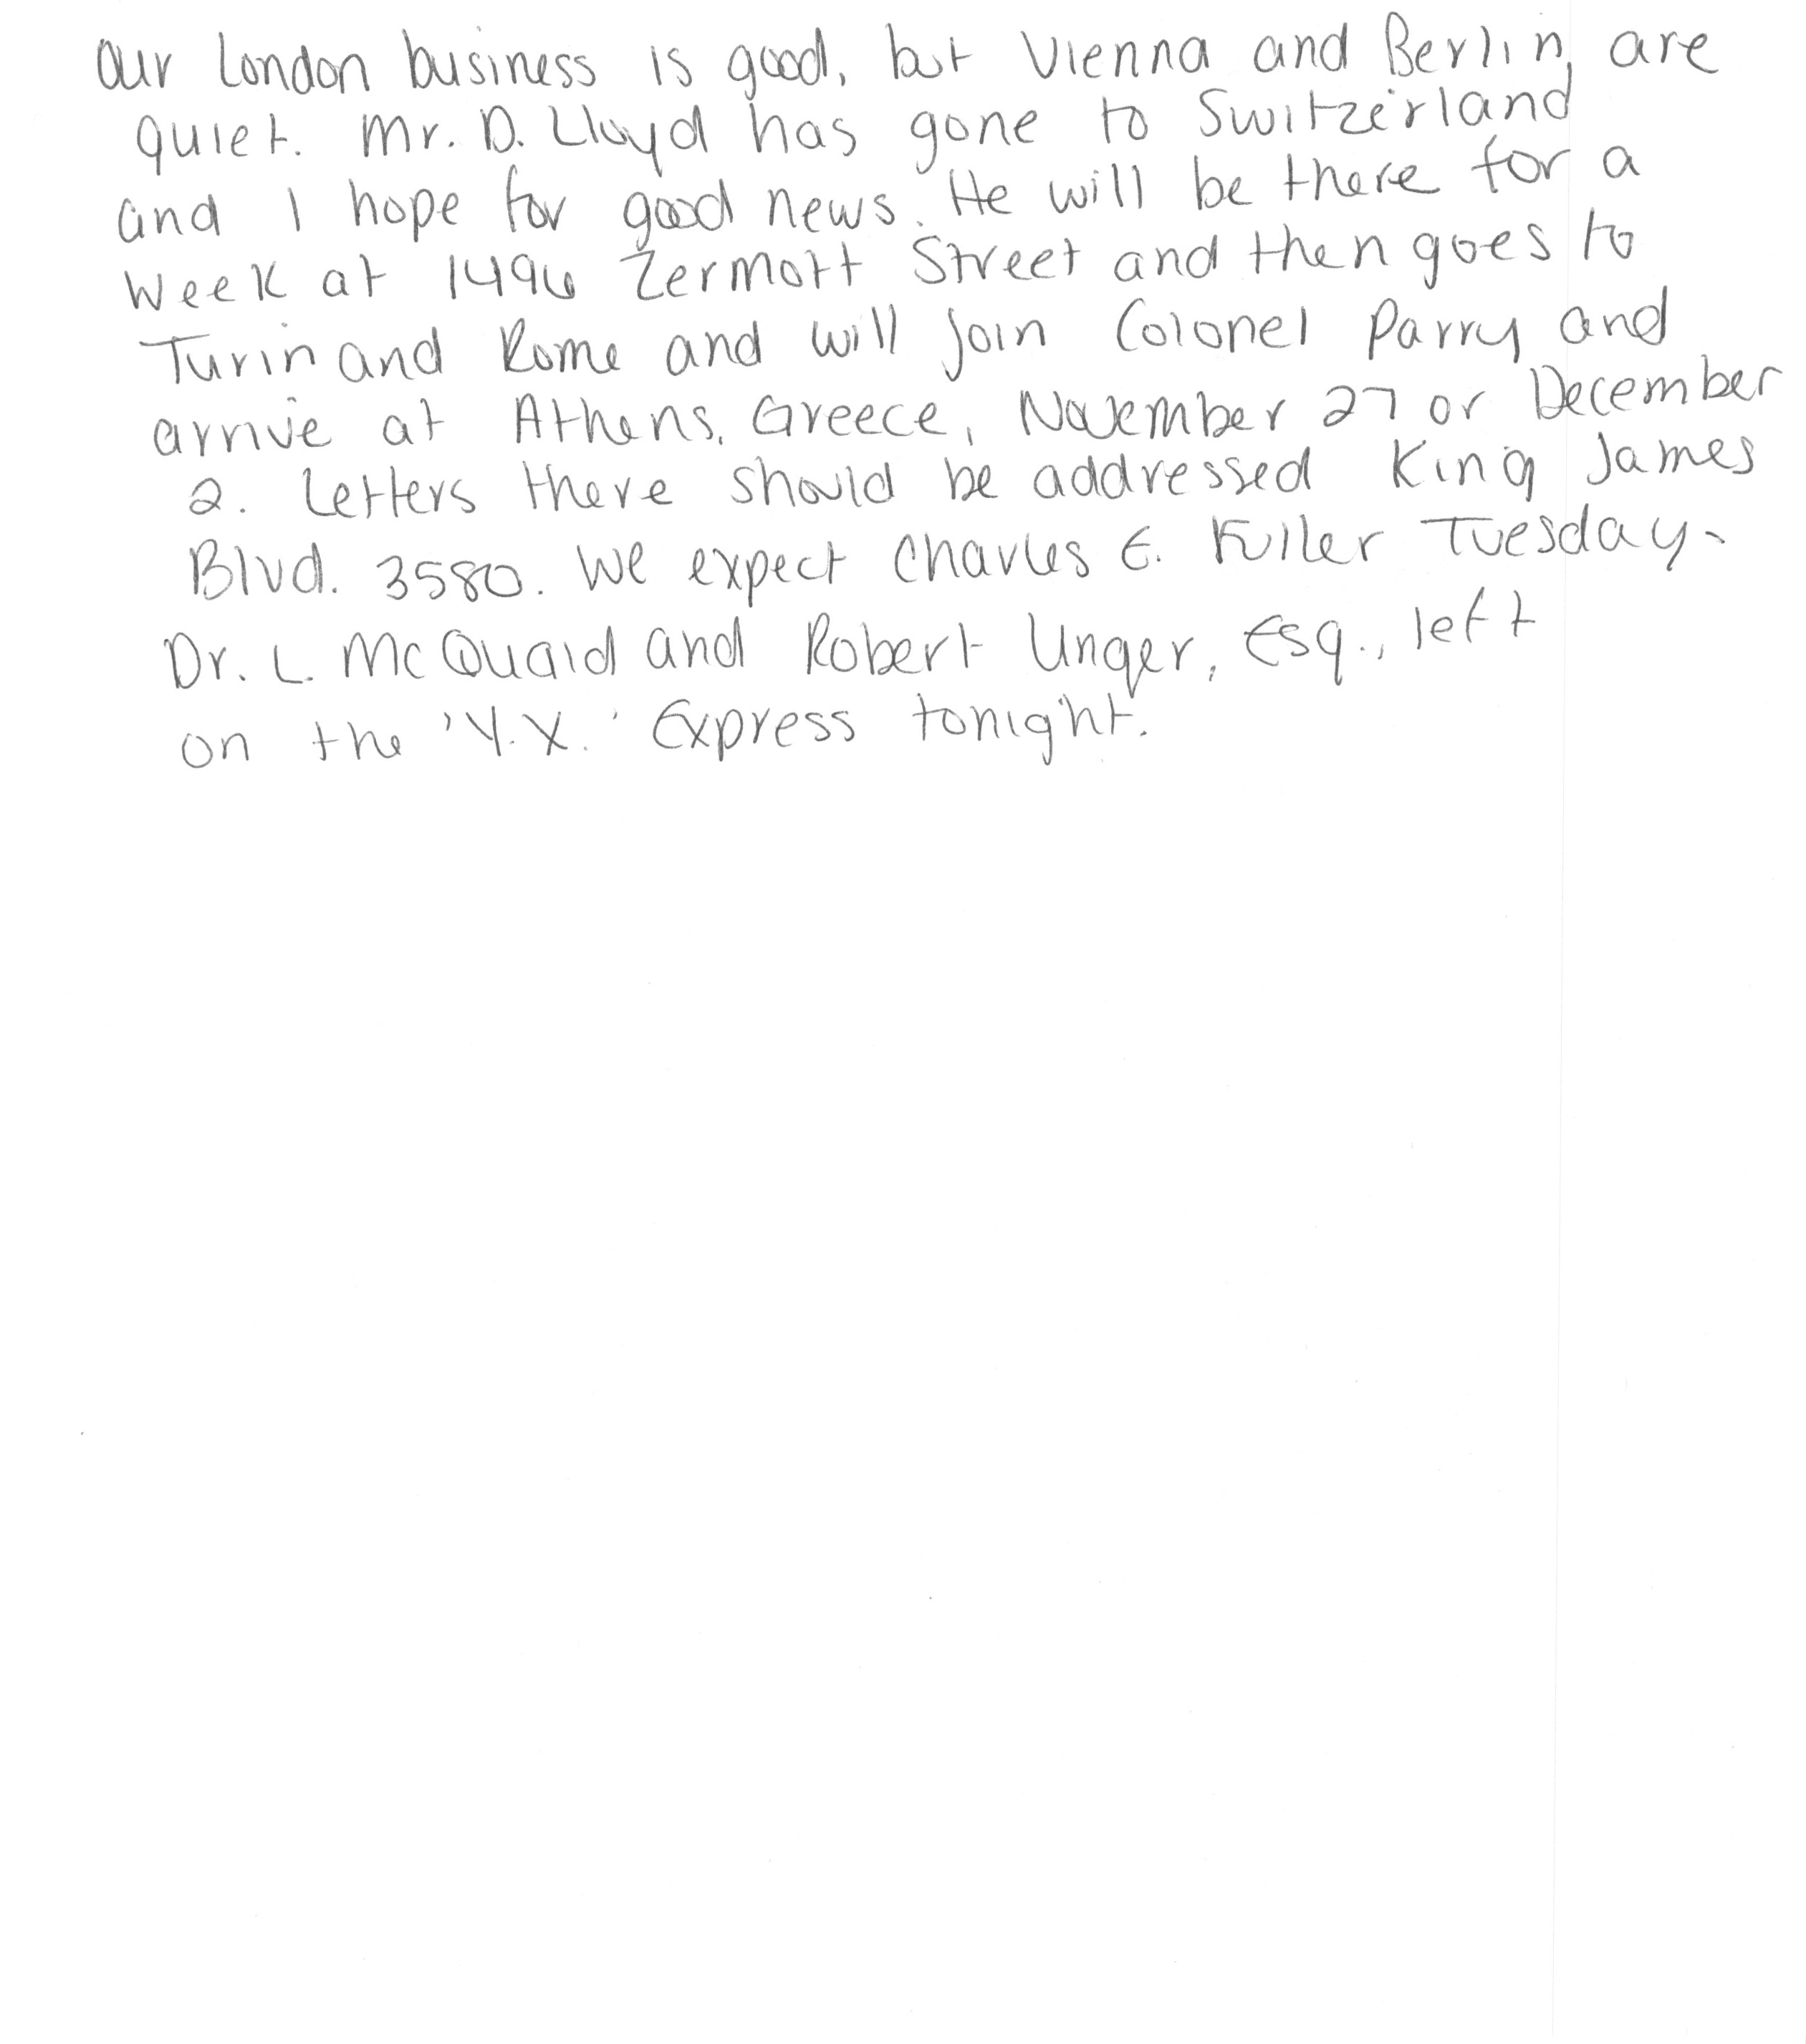 Our London business is good, but Vienna and Berlin are
quiet. Mr. D. Lloyd has gone to Switzerland
and I hope for good news. He will be there for a
week at 1496 Zermott Street and then goes to
Turin and Rome and will join Colonel Parry and
arrive at Athens, Greece, November 27 or December
2. Letters there should be addressed King James
Blvd. 3580. We expect Charles E. Fuller Tuesday.
Dr. L. McQuaid and Robert Unger, Esq., left
on the 'Y.X.' Express tonight.